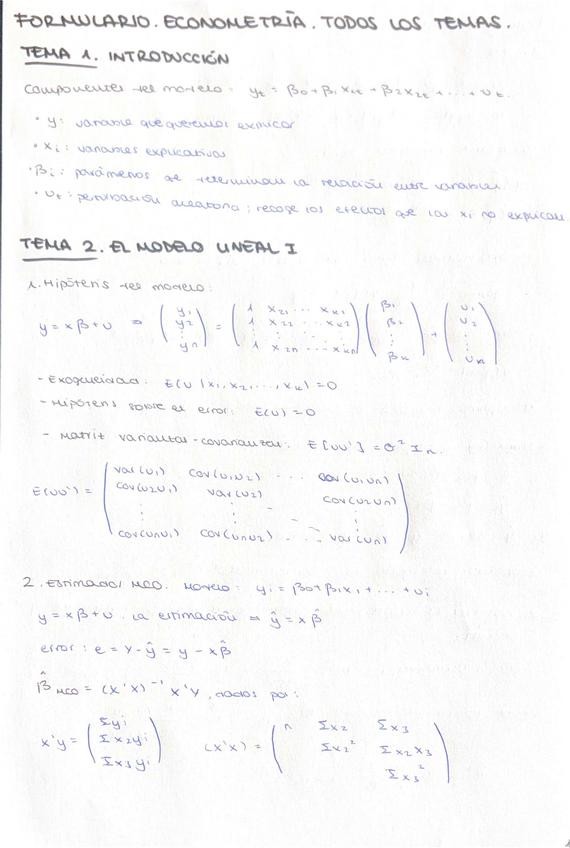 FORMULARIO. ECONOMETRÍA. TODOS LOS TEMAS.
TEMA 1. INTRODUCCIÓN
Componentes del modelo: yt = β0+β1x1t + β2x2t + ... + ut.
• y: variable que queremos explicar
• xi: variables explicativas
• βi: parámetros que determinan la relación entre variables.
• ut: perturbación aleatoria; recoge los efectos que las xi no explican
TEMA 2. EL MODELO LINEAL I
1. Hipótesis del modelo:
y = xβ+u ⇒ (y1 y2 ⋮ yn) = (1 x21 ... xk1 1 x22 ... xk2 ⋮ 1 x2n ... xkn) (β1 β2 ⋮ βk) + (u1 u2 ⋮ un)
- Exogeneidad: E(u | x1, x2, ..., xk) = 0
- Hipótesis sobre el error: E(u) = 0
- Matriz varianzas-covarianzas: E[uu'] = σ² In.
E(uu') = (var(u1) cov(u1u2) ... cov(u1un)
cov(u2u1) var(u2) cov(u2un)
⋮ ⋮ ⋱ ⋮
cov(unu1) cov(unu2) ... var(un))
2. Estimador MCO. Modelo: yi = β0+β1x1 + ... + ui
y = xβ+u. La estimación ⇒ ŷ = xβ̂
error: e = y - ŷ = y - xβ̂
β̂ MCO = (x'x)⁻¹ x'y, dados por:
x'y = (Σyi Σx2yi Σx3yi) (x'x) = (n Σx2 Σx3
Σx2² Σx2x3
Σx3²)
1